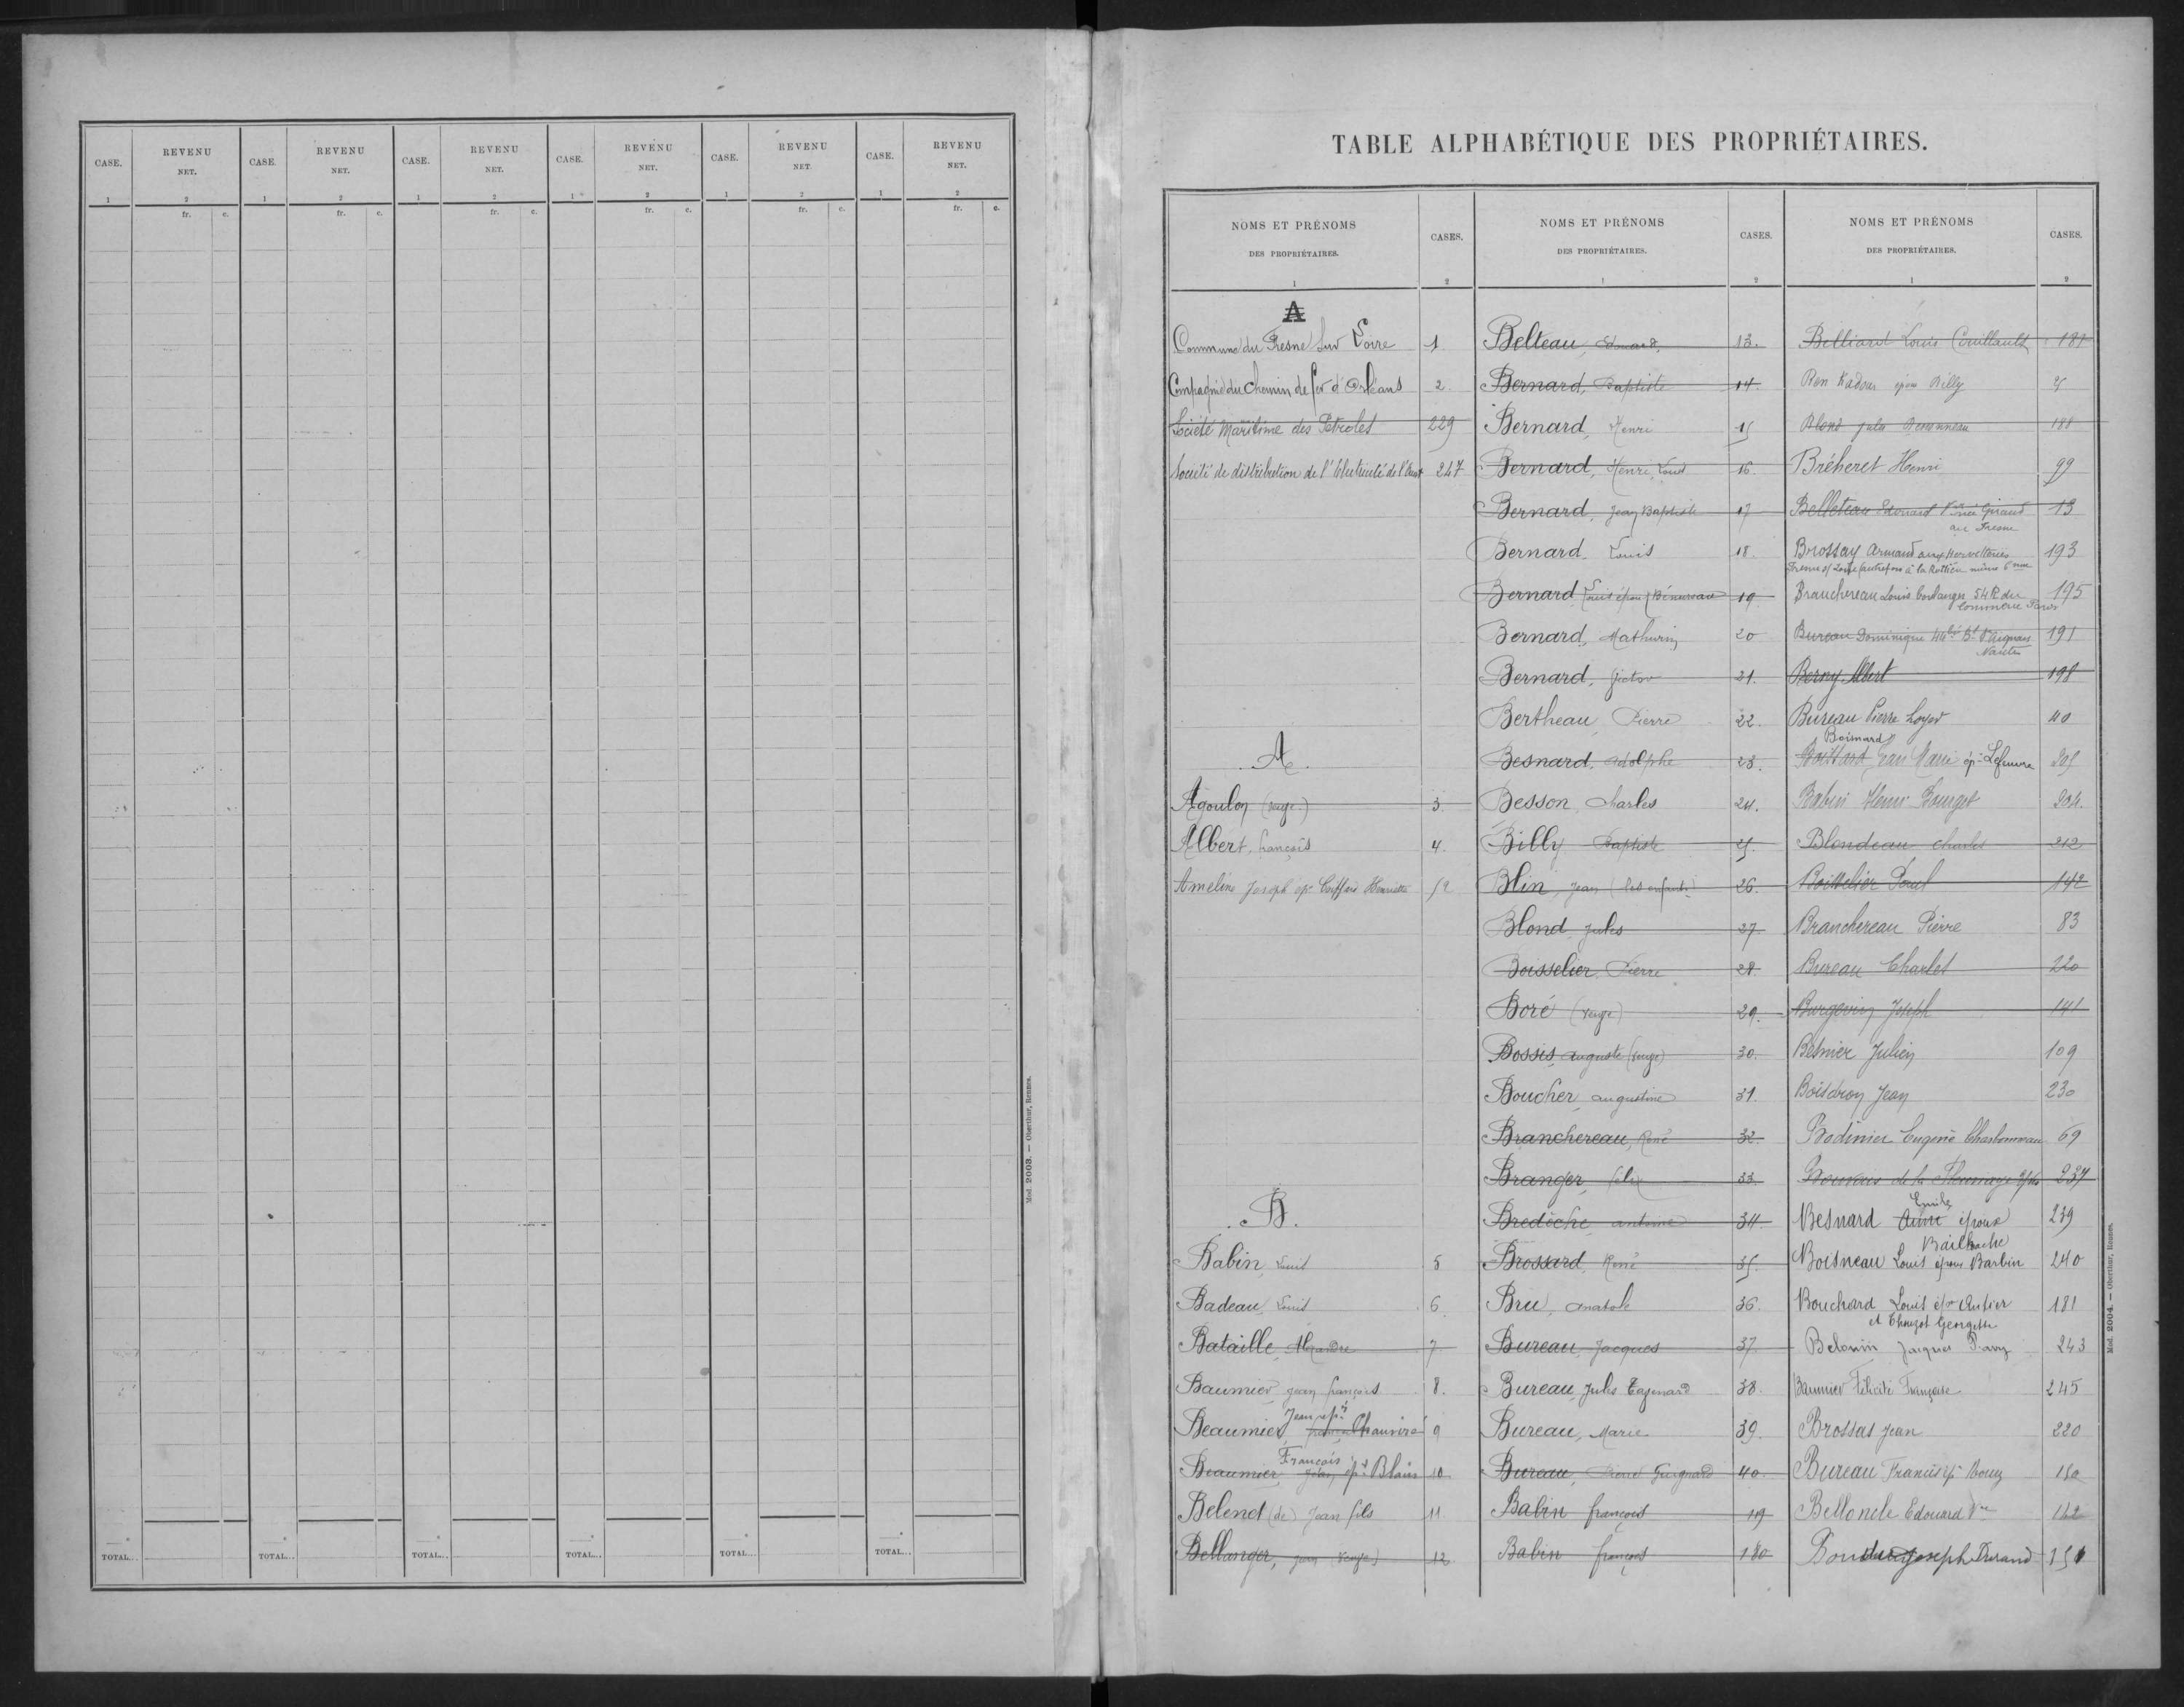 CASE. REVENU NET. CASE. REVENU NET. CASE. REVENU NET. CASE. REVENU NET. CASE. REVENU NET. CASE. REVENU NET.
1 2 1 2 1 2 1 2 1 2 1 2
fr. c. fr. c. fr. c. fr. c. fr. c. fr. c.
TOTAL... TOTAL... TOTAL... TOTAL... TOTAL... TOTAL...
Mod. 2003. — Oberthur, Rennes.
TABLE ALPHABÉTIQUE DES PROPRIÉTAIRES.
NOMS ET PRÉNOMS
DES PROPRIÉTAIRES.
CASES.
1 2
A
Commune du Fresne sur Loire 1
Compagnie du chemin de fer d'Orléans 2
Société Maritime des Pétroles 229
Société de distribution de l'Electricité de l'Ouest 247
A.
Agoulon (veuve) 3
Albert, François 4.
Ameline Joseph ép. Henriette 52
B.
Babin, Louis 5
Badeau, Louis 6
Bataille, Alexandre 7
Baumier jean françois 8.
Jean ép.
Beaumier, Chauviré 9
François
Beaumier, ép. Blain 10
Belend (de) Jean fils 11
Bellanger, jean (veuve) 12
NOMS ET PRÉNOMS
DES PROPRIÉTAIRES.
CASES.
1 2
Belteau, Edouard, 13.
Bernard, Baptiste 14.
Bernard, Henri 15
Bernard, Henri, Louis 16.
Bernard, Jean Baptiste 17
Bernard Louis 18.
Bernard, Louis époux Bénureau 19.
Bernard, Mathurin 20
Bernard, Victor 21.
Bertheau, Pierre 22.
Besnard, adolphe 23.
Besson, charles 24.
Billy Baptiste 25.
Blin, jean (les enfants) 26.
Blond, jules 27
Boisselier, Pierre 28
Boré (veuve) 29.
Bossis, auguste (veuve) 30.
Boucher, augustine 31.
Branchereau, René 32.
Branger, félix 33.
Bredèche, antoine 34.
Brossard, René 35.
Bru, anatole 36.
Bureau, Jacques 37.
Bureau, Jules 38.
Bureau, Marie 39.
Bureau, Pierre Guignard 40.
Babin françois 119
Babin françois 180
NOMS ET PRÉNOMS
DES PROPRIÉTAIRES.
CASES.
1 2
Belliard Louis Couillault 181
Ben Kadour époux Billy 25
Blond jules 188
Bréheret Henri 99
Belleteau Edouard Vve née Giraud 13
au Fresne
Brossay Armand 193
Branchereau Louis boulanger 54 R du 195
Commerce Paris
Bureau Dominique 44 bis Bd St Aignan 191
Nantes
Berny Albert 198
Bureau Pierre Loyer 40
Boisnard
Jean Marie ép. Lefeuvre 205
Babin Henri Bourget 204.
Blondeau charles 212
Boisselier Paul 142
Branchereau Pierre 83
Bureau Charles 220
Burgevin Joseph 141
Besnier Julien 109
Boisdron Jean 230
Bodinier Eugène Charbonneau 69
237
Emile
Besnard Aimé époux 239
Bailhache
Boisneau Louis époux Barbin 240
Bouchard Louis époux Autier 181
et Chouzot Georgette
Belouin Jacques 243
Baumier Félicité Françoise 245
Brossas Jean 220
Bureau Francis ép. Bouy 150
Belloncle Edouard Vve 142
Joseph Durand 251
Mod. 2004. — Oberthur, Rennes.